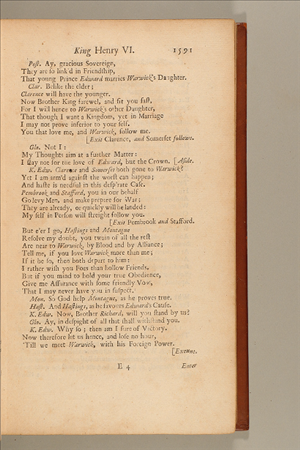 King Henry VI. 1591
Post. Ay, gracious Sovereign,
They are so link'd in Friendship,
That young Prince Edward marries Warwick's Daughter.
Clar. Belike the elder;
Clarence will have the younger.
Now Brother King farewel, and sit you fast,
For I will hence to Warwick's other Daughter,
That though I want a Kingdom, yet in Marriage
I may not prove inferior to your self.
You that love me, and Warwick, follow me.
[Exit Clarence, and Somerset follows.
Glo. Not I:
My Thoughts aim at a further Matter:
I stay not for the love of Edward, but the Crown. [Aside.
K. Edw. Clarence and Somerset both gone to Warwick?
Yet I am arm'd against the worst can happen;
And haste is needful in this desp'rate Case.
Pembrook and Stafford, you in our behalf
Go levy Men, and make prepare for War;
They are already, or quickly will be landed:
My self in Person will streight follow you.
[Exit Pembrook and Stafford.
But e'er I go, Hastings and Montague
Resolve my doubt, you twain of all the rest
Are near to Warwick, by Blood and by Alliance;
Tell me, if you love Warwick more than me;
If it be so, then both depart to him:
I rather wish you Foes than hollow Friends.
But if you mind to hold your true Obedience,
Give me Assurance with some friendly Vow,
That I may never have you in suspect.
Mon. So God help Montague, as he proves true.
Hast. And Hastings, as he favours Edward's Cause.
K. Edw. Now, Brother Richard, will you stand by us?
Glo. Ay, in despight of all that shall withstand you.
K. Edw. Why so; then am I sure of Victory.
Now therefore let us hence, and lose no hour,
'Till we meet Warwick, with his Foreign Power.
[Exeunt.
E 4 Enter